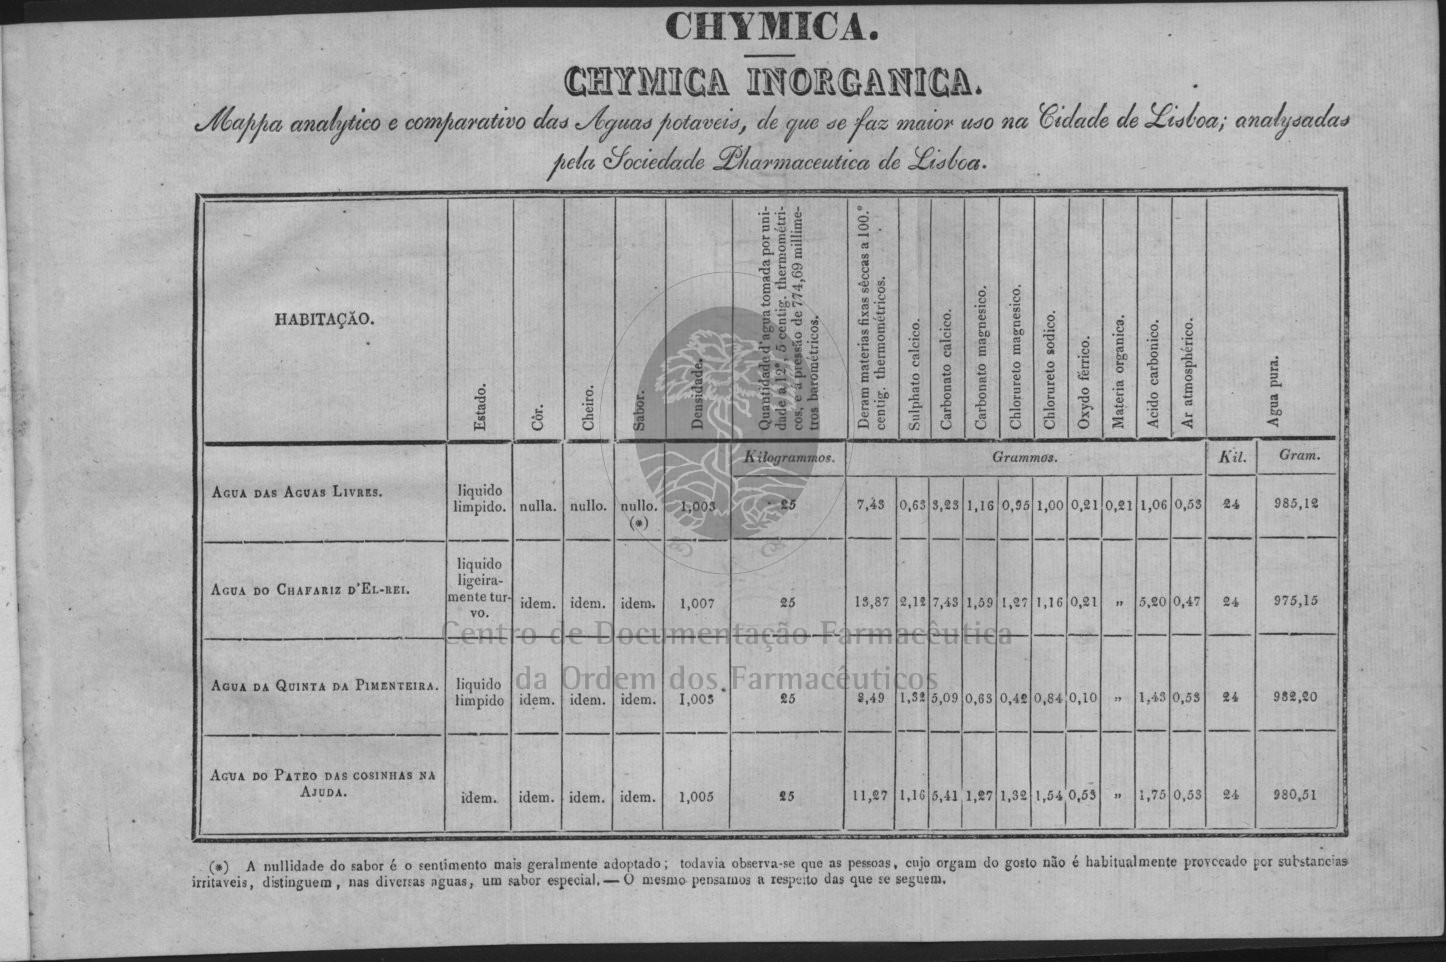 CHYMICA.
CHYMICA INORGANICA.
Mappa analytico e comparativo das Aguas potaveis, de que se faz maior uso na Cidade de Lisboa; analysadas
pela Sociedade Pharmaceutica de Lisboa.
HABITAÇÃO.
Estado.
Côr.
Cheiro.
Sabor.
Densidade.
Quantidade d'agua tomada por uni-
dade a 12°, 5 centig. thermométri-
cos, e á pressão de 774,69 millime-
tros barométricos.
Deram materias fixas sêccas a 100.°
centig. thermométricos.
Sulphato calcico.
Carbonato calcico.
Carbonato magnesico.
Chlorureto magnesico.
Chlorureto sodico.
Oxydo férrico.
Materia organica.
Acido carbonico.
Ar atmosphérico.
Agua pura.
Kilogrammos. Grammos. Kil. Gram.
AGUA DAS AGUAS LIVRES. liquido
limpido. nulla. nullo. nullo. 1,003 25 7,43 0,63 3,23 1,16 0,95 1,00 0,21 0,21 1,06 0,53 24 985,12
(*)
AGUA DO CHAFARIZ D'EL-REI. liquido
ligeira-
mente tur-
vo. idem. idem. idem. 1,007 25 13,87 2,12 7,43 1,59 1,27 1,16 0,21 „ 5,20 0,47 24 975,15
AGUA DA QUINTA DA PIMENTEIRA. liquido
limpido idem. idem. idem. 1,003 25 8,49 1,32 5,09 0,63 0,42 0,84 0,10 „ 1,43 0,53 24 982,20
AGUA DO PATEO DAS COSINHAS NA
AJUDA. idem. idem. idem. idem. 1,005 25 11,27 1,16 5,41 1,27 1,32 1,54 0,53 „ 1,75 0,53 24 980,51
(*) A nullidade do sabor é o sentimento mais geralmente adoptado; todavia observa-se que as pessoas, cujo orgam do gosto não é habitualmente provocado por substancias
irritaveis, distinguem, nas diversas aguas, um sabor especial. — O mesmo pensamos a respeito das que se seguem.
Centro de Documentação Farmacêutica
da Ordem dos Farmacêuticos